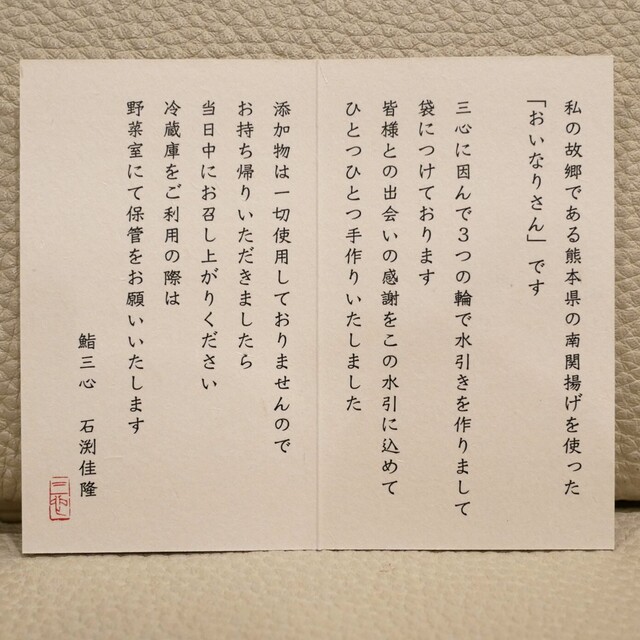 私の故郷である熊本県の南関揚げを使った
「おいなりさん」です
三心に因んで3つの輪で水引きを作りまして
袋につけております
皆様との出会いの感謝をこの水引に込めて
ひとつひとつ手作りいたしました
添加物は一切使用しておりませんので
お持ち帰りいただきましたら
当日中にお召し上がりください
冷蔵庫をご利用の際は
野菜室にて保管をお願いいたします
鮨三心 石渕佳隆
三心